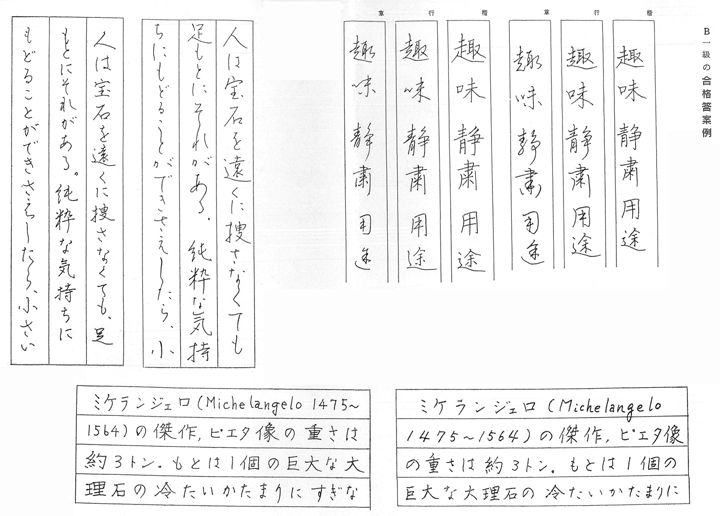 B一級の合格答案例
楷
趣味 静粛 用途
行
趣味 静粛 用途
草
趣味 静粛 用途
楷
趣味 静粛 用途
行
趣味 静粛 用途
草
趣味 静粛 用途
人は宝石を遠くに捜さなくても
足もとにそれがある。純粋な気持
ちにもどることができさえしたら、小
人は宝石を遠くに捜さなくても、足
もとにそれがある。純粋な気持ちに
もどることができさえしたら、小さい
ミケランジェロ (Michelangelo
1475~1564)の傑作, ピエタ像
の重さは約3トン. もとは1個の
巨大な大理石の冷たいかたまりに
ミケランジェロ(Michelangelo 1475~
1564)の傑作, ピエタ像の重さは
約3トン. もとは1個の巨大な大
理石の冷たいかたまりにすぎな